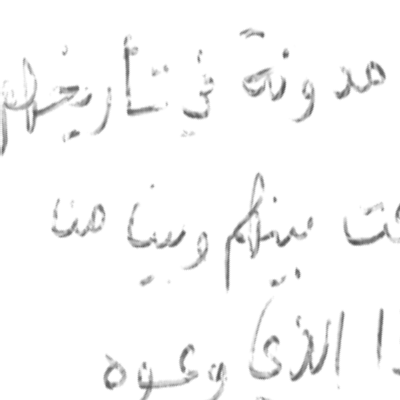 مدونة في تأريخهم
بينهم وبيننا هنا
الذي وعوه